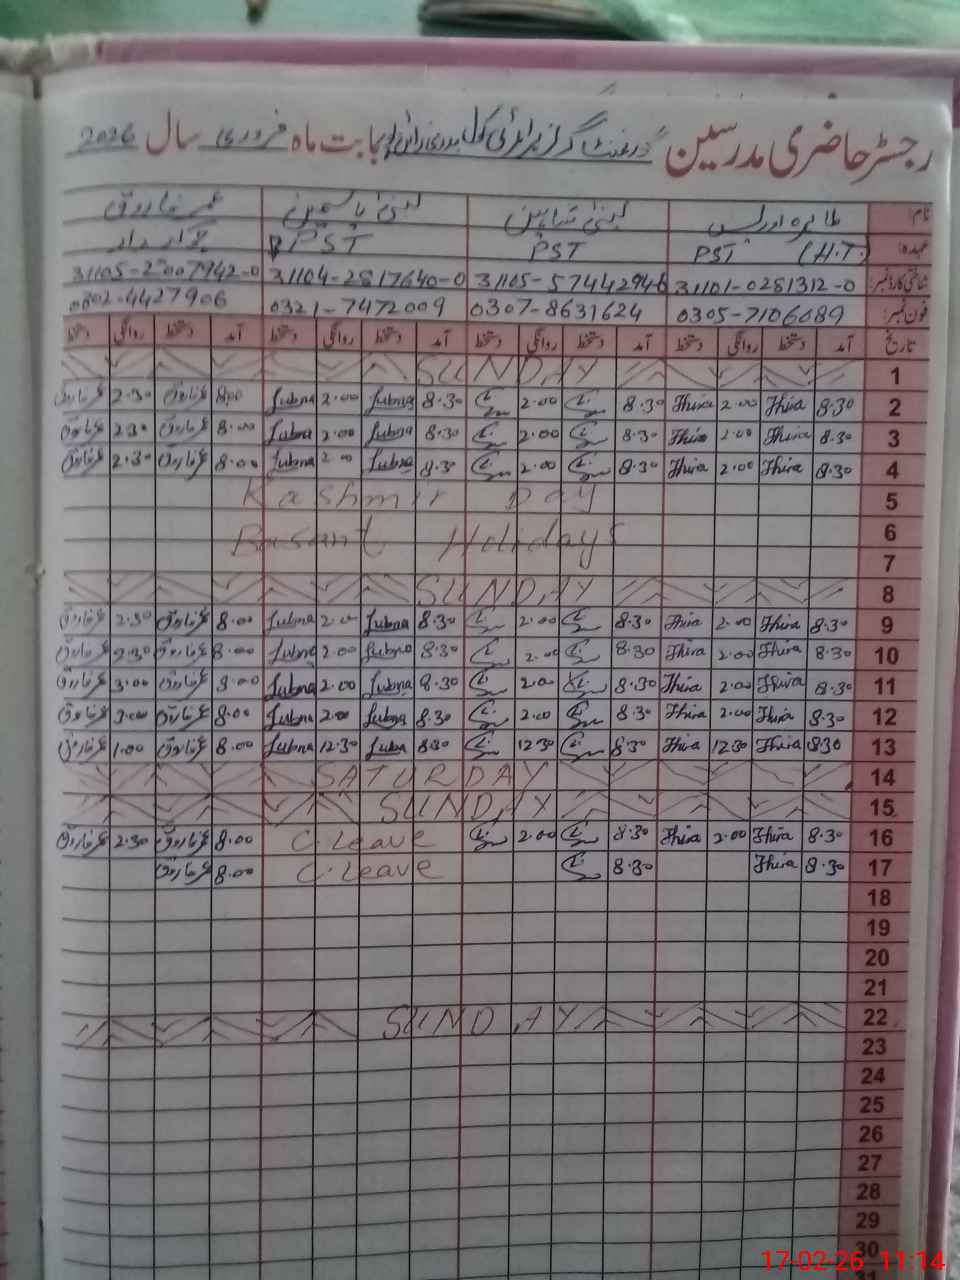 رجسٹر حاضری مدرسین گورنمنٹ گرلز پرائمری سکول بابت ماہ فروری سال 2026
نام: طاہرہ ادریس لبنیٰ شاہین لبنیٰ یاسمین عمر فاروق
عہدہ: PST (H.T.) PST PST چوکیدار
شناختی کارڈ نمبر: 31101-0281312-0 31105-5744294-6 31104-2817640-0 31105-2007942-0
فون نمبر: 0305-7106089 0307-8631624 0321-7472009 0302-4427906
تاریخ آمد دستخط روانگی دستخط آمد دستخط روانگی دستخط آمد دستخط روانگی دستخط آمد دستخط روانگی دستخط
1 SUNDAY
2 8.30 Thira 2.00 Thira 8.30 2.00 8.30 Lubna 2.00 Lubna 8.00 عمر فاروق 2.30 عمر فاروق
3 8.30 Thira 2.00 Thira 8.30 2.00 8.30 Lubna 2.00 Lubna 8.00 عمر فاروق 2.30 عمر فاروق
4 8.30 Thira 2.00 Thira 8.30 2.00 8.30 Lubna 2.00 Lubna 8.00 عمر فاروق 2.30 عمر فاروق
5 Kashmir Day
6 Basant Holidays
7
8 SUNDAY
9 8.30 Thira 2.00 Thira 8.30 2.00 8.30 Lubna 2.00 Lubna 8.00 عمر فاروق 2.30 عمر فاروق
10 8.30 Thira 2.00 Thira 8.30 2.00 8.30 Lubna 2.00 Lubna 8.00 عمر فاروق 2.30 عمر فاروق
11 8.30 Thira 2.00 Thira 8.30 2.00 8.30 Lubna 2.00 Lubna 8.00 عمر فاروق 3.00 عمر فاروق
12 8.30 Thira 2.00 Thira 8.30 2.00 8.30 Lubna 2.00 Lubna 8.00 عمر فاروق 3.00 عمر فاروق
13 8.30 Thira 12.30 Thira 8.30 12.30 8.30 Luba 12.30 Lubna 8.00 عمر فاروق 1.00 عمر فاروق
14 SATURDAY
15 SUNDAY
16 8.30 Thira 2.00 Thira 8.30 2.00 C.Leave 8.00 عمر فاروق 2.30 عمر فاروق
17 8.30 Thira 8.30 C.Leave 8.00 عمر فاروق
18
19
20
21
22 SUNDAY
23
24
25
26
27
28
29
30
31
17-02-26 11:14